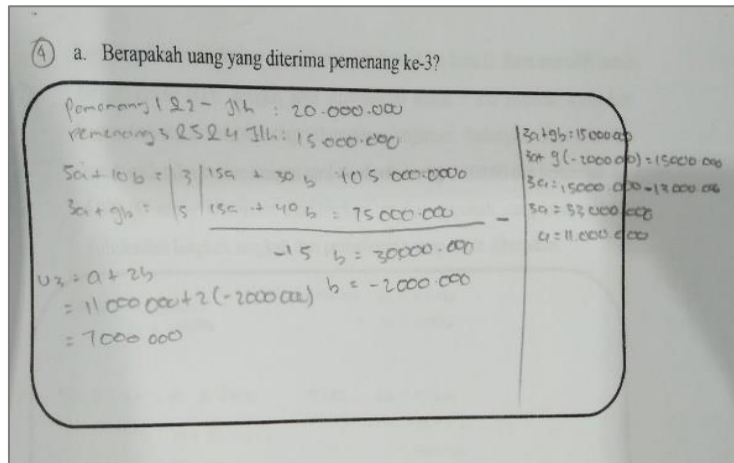 4 a. Berapakah uang yang diterima pemenang ke-3?
Pemenang 1 & 2 - Jlh : 20.000.000
Pemenang 3 Jlh : 15.000.000
5a + 10b = | 3 | 15a + 30b 105 000.0000
3a + 9b = | 5 | 15a + 40b = 75000.000 -
-15 b = 30000.000
b = -2000.000
U3 = a + 2b
= 11 000 000 + 2 (-2000 000)
= 7000 000
3a + 9b = 15000 000
3a + 9 (-2000 000) = 15000 000
3a = 15000.000 - 18000.000
3a = 33 000 000
a = 11.000.000